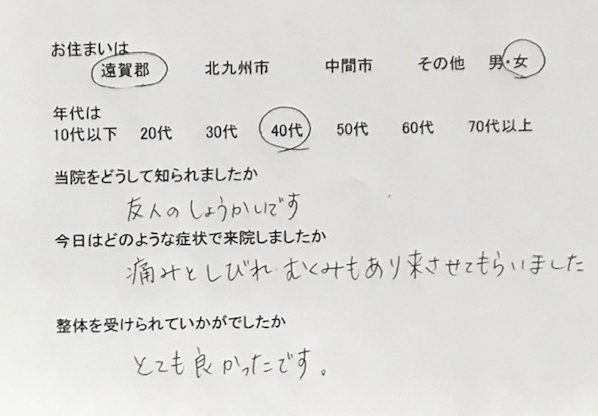 お住まいは
遠賀郡 北九州市 中間市 その他 男・女
年代は
10代以下 20代 30代 40代 50代 60代 70代以上
当院をどうして知られましたか
友人のしょうかいです
今日はどのような症状で来院しましたか
痛みとしびれ・むくみもあり来させてもらいました
整体を受けられていかがでしたか
とても良かったです。